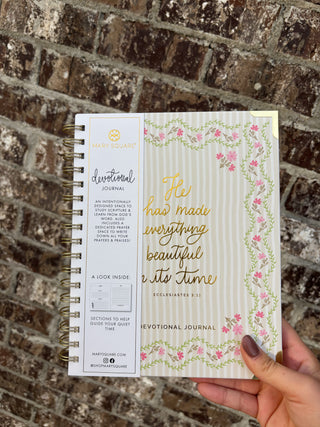 MARY SQUARE
devotional
JOURNAL
AN INTENTIONALLY
DESIGNED SPACE TO
STUDY SCRIPTURE &
LEARN FROM GOD'S
WORD. ALSO
INCLUDES A
DEDICATED PRAYER
SPACE TO WRITE
DOWN ALL YOUR
PRAYERS & PRAISES!
A LOOK INSIDE:
SECTIONS TO HELP
GUIDE YOUR QUIET
TIME.
MARYSQUARE.COM
@SHOPMARYSQUARE
He
has made
everything
beautiful
in its time
ECCLESIASTES 3:11
DEVOTIONAL JOURNAL